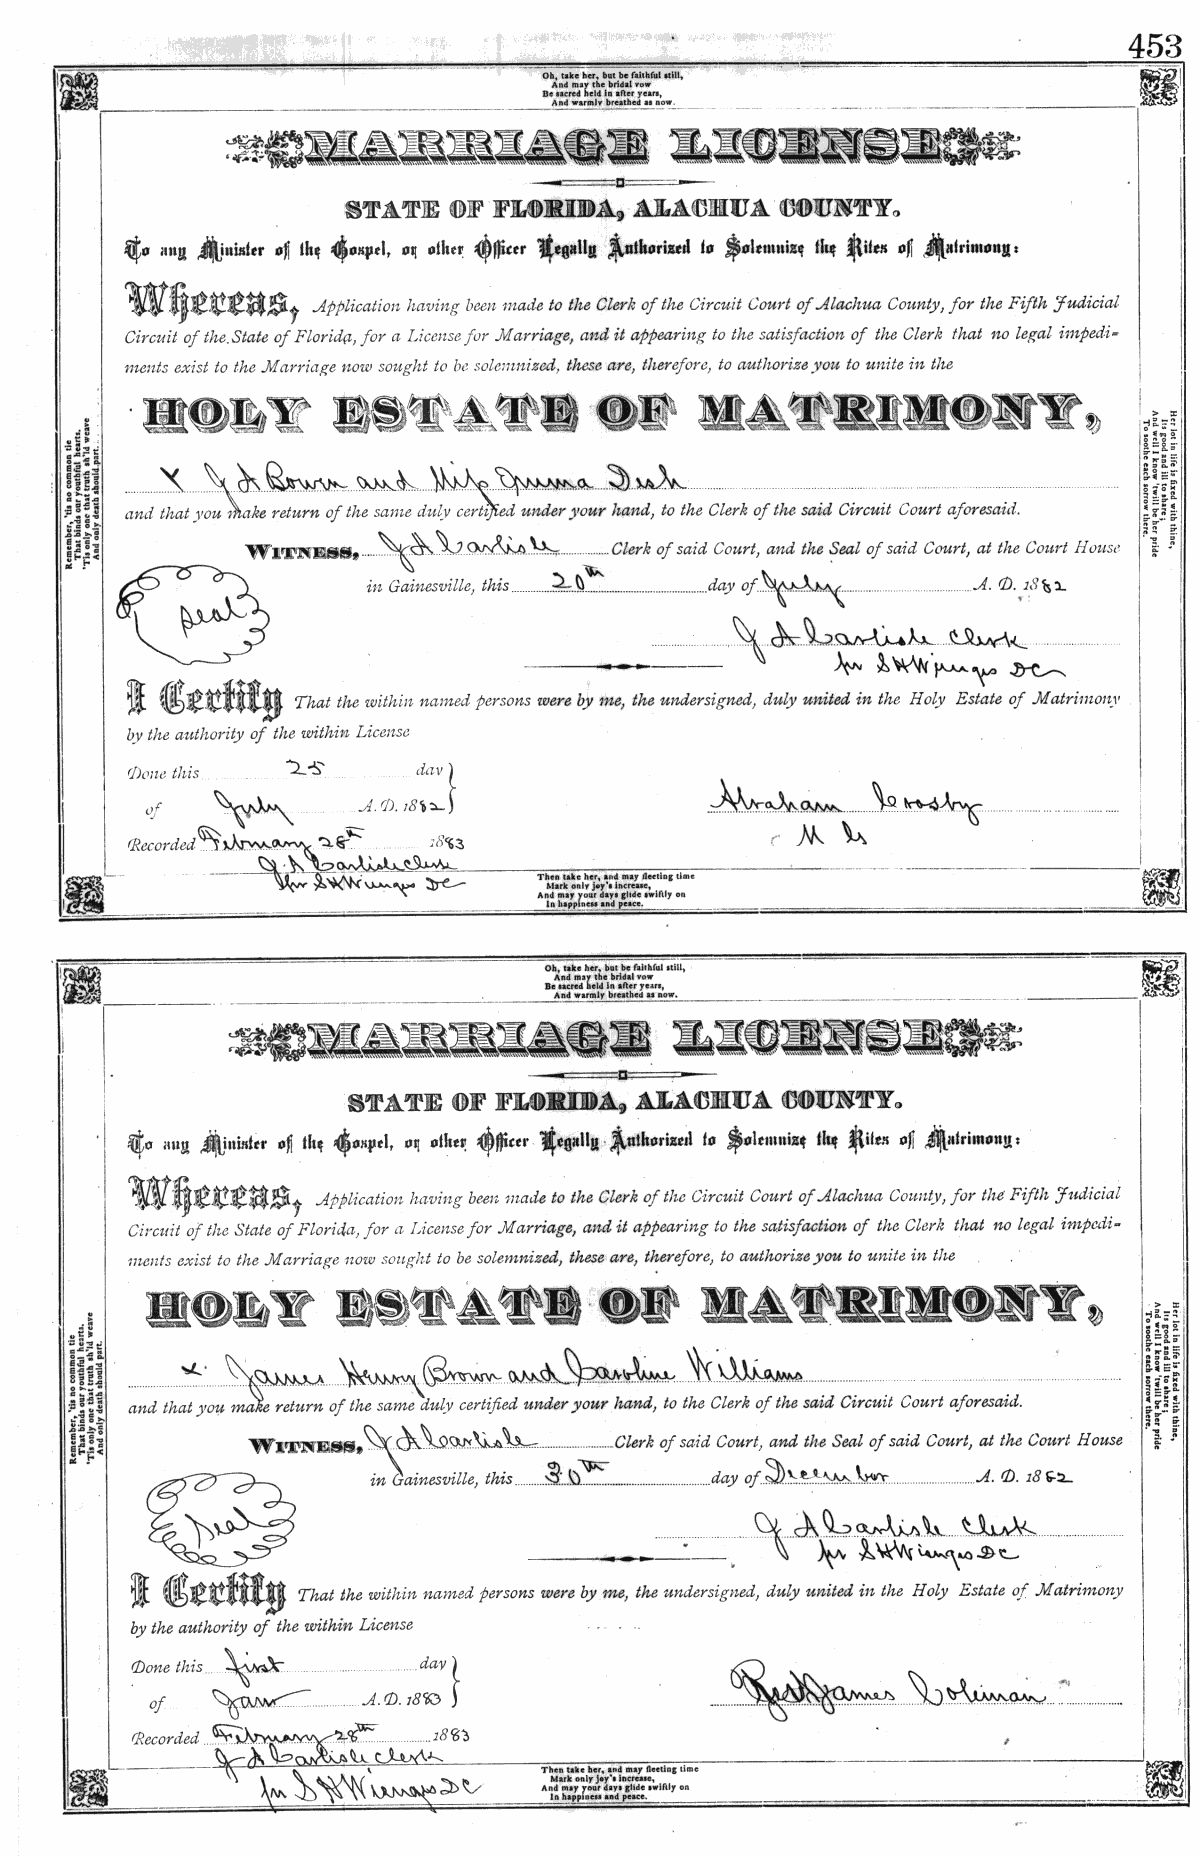 453
Oh, take her, but be faithful still,
And may the bridal vow
Be sacred held in after years,
And warmly breathed as now.
MARRIAGE LICENSE
STATE OF FLORIDA, ALACHUA COUNTY.
To any Minister of the Gospel, or other Officer Legally Authorized to Solemnize the Rites of Matrimony:
Whereas, Application having been made to the Clerk of the Circuit Court of Alachua County, for the Fifth Judicial
Circuit of the State of Florida, for a License for Marriage, and it appearing to the satisfaction of the Clerk that no legal impedi-
ments exist to the Marriage now sought to be solemnized, these are, therefore, to authorize you to unite in the
HOLY ESTATE OF MATRIMONY,
Remember, 'tis no common tie
That binds our youthful hearts,
'Tis only one that truth sh'ld weave
And only death should part.
Her lot in life is fixed with thine,
Its good and ill to share;
And well I know 'twill be her pride
To soothe each sorrow there.
X J A Bowen and Miss Emma Desh
and that you make return of the same duly certified under your hand, to the Clerk of the said Circuit Court aforesaid.
WITNESS, J A Carlisle Clerk of said Court, and the Seal of said Court, at the Court House
in Gainesville, this 20th day of July A. D. 1882
Seal
J A Carlisle Clerk
per S H Wienges DC
I Certify That the within named persons were by me, the undersigned, duly united in the Holy Estate of Matrimony
by the authority of the within License
Done this 25 day
of July A. D. 1882
Abraham Crosby
M G
Recorded February 28th 1883
J A Carlisle Clerk
per S H Wienges DC
Then take her, and may fleeting time
Mark only joy's increase,
And may your days glide swiftly on
In happiness and peace.
Oh, take her, but be faithful still,
And may the bridal vow
Be sacred held in after years,
And warmly breathed as now.
MARRIAGE LICENSE
STATE OF FLORIDA, ALACHUA COUNTY.
To any Minister of the Gospel, or other Officer Legally Authorized to Solemnize the Rites of Matrimony:
Whereas, Application having been made to the Clerk of the Circuit Court of Alachua County, for the Fifth Judicial
Circuit of the State of Florida, for a License for Marriage, and it appearing to the satisfaction of the Clerk that no legal impedi-
ments exist to the Marriage now sought to be solemnized, these are, therefore, to authorize you to unite in the
HOLY ESTATE OF MATRIMONY,
Remember, 'tis no common tie
That binds our youthful hearts,
'Tis only one that truth sh'ld weave
And only death should part.
Her lot in life is fixed with thine,
Its good and ill to share;
And well I know 'twill be her pride
To soothe each sorrow there.
X James Henry Brown and Caroline Williams
and that you make return of the same duly certified under your hand, to the Clerk of the said Circuit Court aforesaid.
WITNESS, J A Carlisle Clerk of said Court, and the Seal of said Court, at the Court House
in Gainesville, this 30th day of December A. D. 1882
Seal
J A Carlisle Clerk
per S H Wienges DC
I Certify That the within named persons were by me, the undersigned, duly united in the Holy Estate of Matrimony
by the authority of the within License
Done this first day
of Jany A. D. 1883
James Coleman
Recorded February 28th 1883
J A Carlisle Clerk
per S H Wienges DC
Then take her, and may fleeting time
Mark only joy's increase,
And may your days glide swiftly on
In happiness and peace.